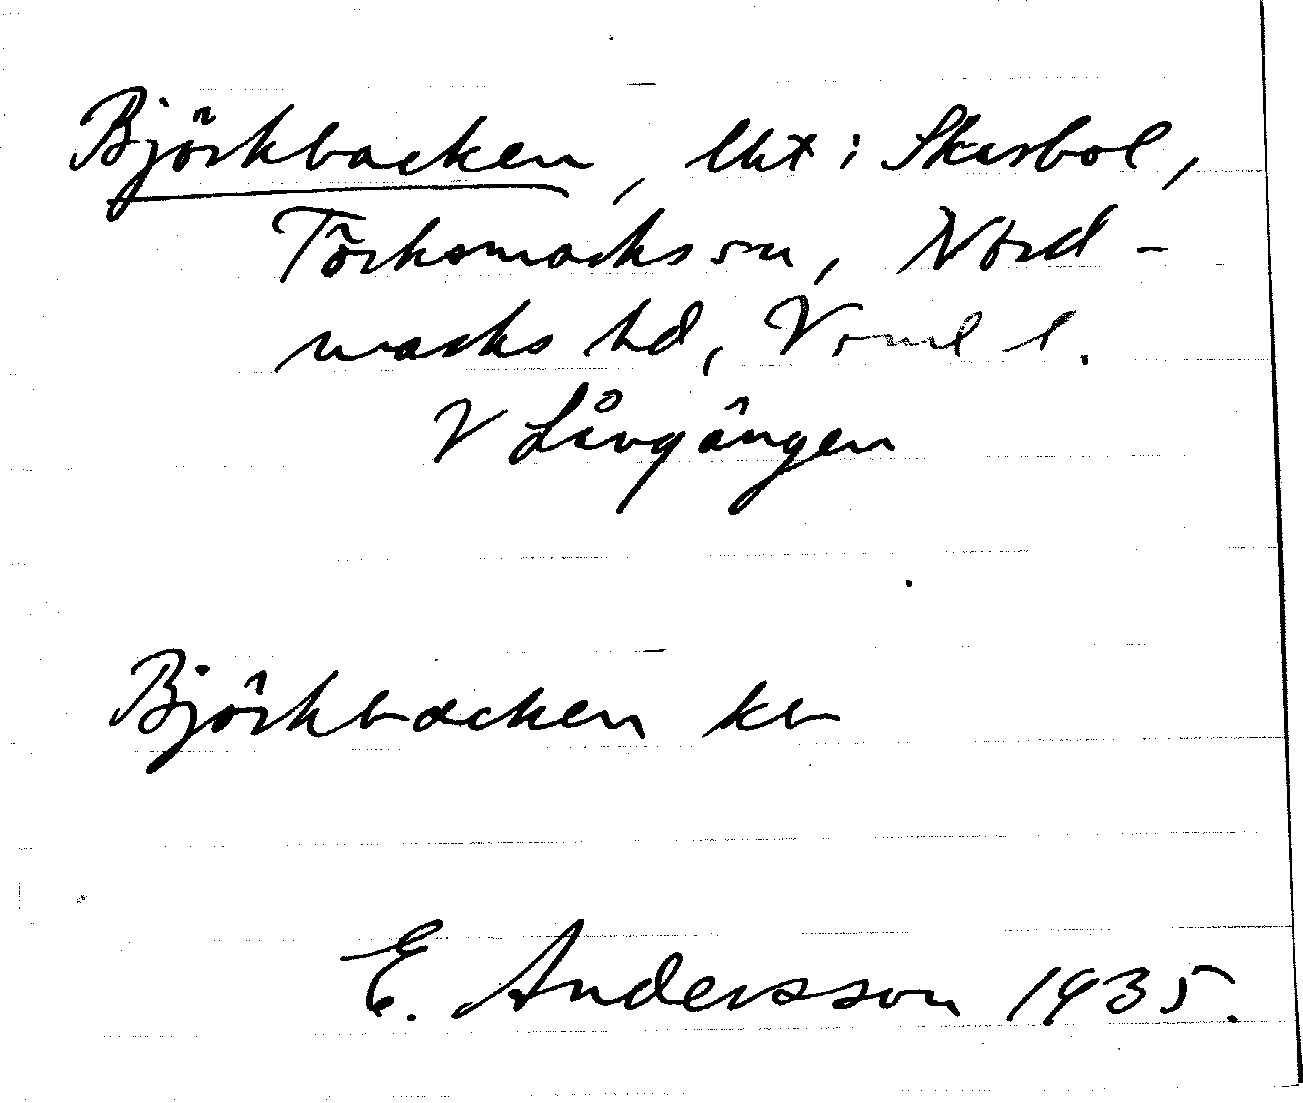 Björkbacken, lht i Skarbol,
Törksmarks sn, Nord-
marks hd, Vrml l.
V Lövgången
Björkbacken kb
E. Andersson 1935.